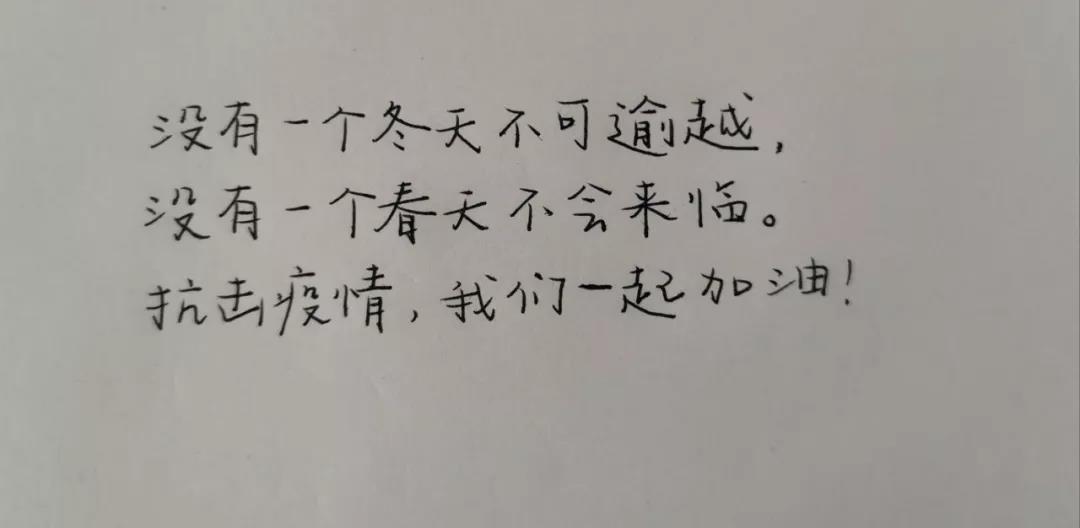 没有一个冬天不可逾越，
没有一个春天不会来临。
抗击疫情，我们一起加油！